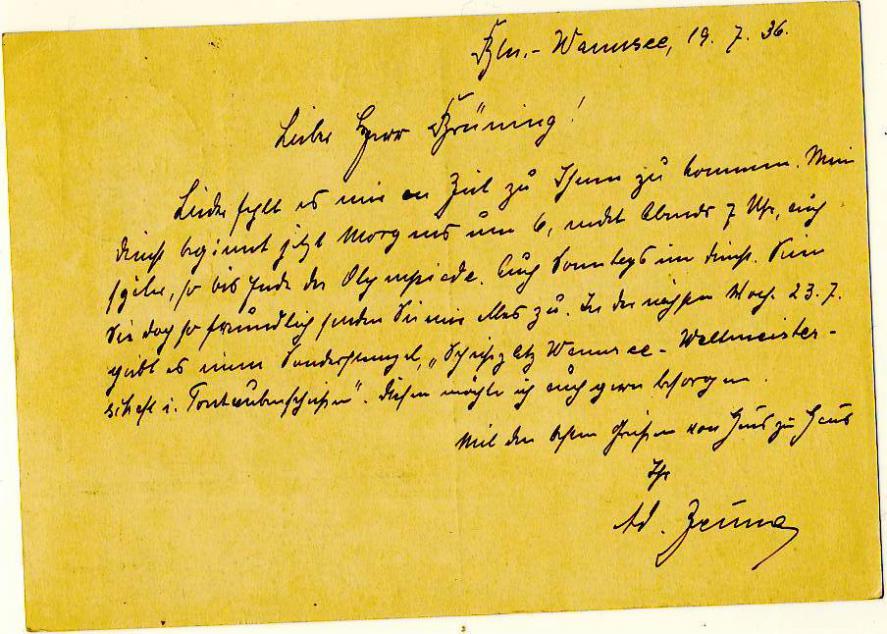 Bln.- Wannsee, 19. 7. 36.
Lieber Herr Brüning!
Leider fehlt es mir an Zeit zu Ihnen zu kommen. Mein
Dienst beginnt jetzt Morgens um 6, endet Abends 7 Uhr, auch
später, so bis Ende der Olympiade. Auch Sonntags im Dienst. Seien
Sie doch so freundlich senden Sie mir alles zu. In der nächsten Woch. 23.7.
gibt es einen Sonderstempel, "Schießplatz Wannsee - Weltmeister-
schaft i. Tontaubenschießen". Diesen möchte ich auch gern besorgen.
Mit den besten Grüßen von Haus zu Haus
Ihr
Ad.